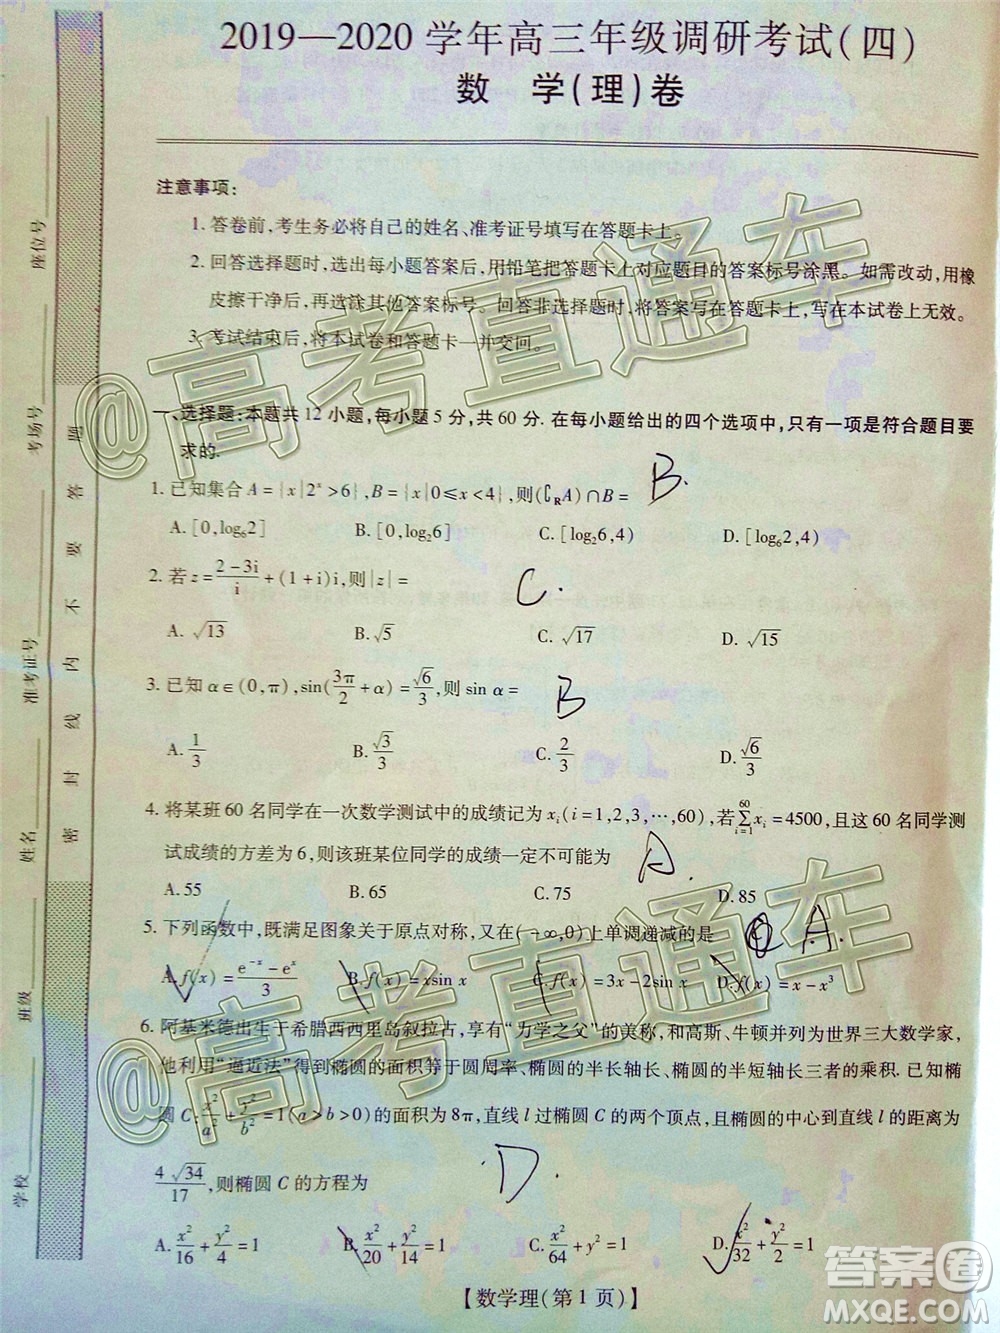 2019—2020 学年高三年级调研考试(四)
数 学(理)卷
注意事项:
1. 答卷前,考生务必将自己的姓名、准考证号填写在答题卡上。
2. 回答选择题时,选出每小题答案后,用铅笔把答题卡上对应题目的答案标号涂黑。如需改动,用橡
皮擦干净后,再选涂其他答案标号。回答非选择题时,将答案写在答题卡上,写在本试卷上无效。
3. 考试结束后,将本试卷和答题卡一并交回。
一、选择题:本题共 12 小题,每小题 5 分,共 60 分. 在每小题给出的四个选项中,只有一项是符合题目要
求的.
1. 已知集合 A={x|2^x>6},B={x|0≤x<4},则(∁_R A)∩B= B.
A. [0,log₆2] B. [0,log₂6] C. [log₂6,4) D. [log₆2,4)
2. 若 z=(2-3i)/i+(1+i)i,则|z|= C.
A. √13 B. √5 C. √17 D. √15
3. 已知 α∈(0,π),sin(3π/2+α)=√6/3,则 sin α= B
A. 1/3 B. √3/3 C. 2/3 D. √6/3
4. 将某班 60 名同学在一次数学测试中的成绩记为 x_i(i=1,2,3,…,60),若∑_{i=1}^{60} x_i=4500,且这 60 名同学测
试成绩的方差为 6,则该班某位同学的成绩一定不可能为 A.
A. 55 B. 65 C. 75 D. 85
5. 下列函数中,既满足图象关于原点对称,又在(-∞,0)上单调递减的是 A.
A. f(x)=(e^{-x}-e^x)/3 B. f(x)=xsin x C. f(x)=3x-2sin x D. f(x)=x-x³
6. 阿基米德出生于希腊西西里岛叙拉古,享有“力学之父”的美称,和高斯、牛顿并列为世界三大数学家,
他利用“逼近法”得到椭圆的面积等于圆周率、椭圆的半长轴长、椭圆的半短轴长三者的乘积. 已知椭
圆 C:x²/a²+y²/b²=1(a>b>0)的面积为 8π,直线 l 过椭圆 C 的两个顶点,且椭圆的中心到直线 l 的距离为
4√34/17,则椭圆 C 的方程为 D.
A. x²/16+y²/4=1 B. x²/20+y²/14=1 C. x²/64+y²=1 D. x²/32+y²/2=1
【数学理(第 1 页)】
学校
班级
姓名
准考证号
考场号
座位号
密 封 线 内 不 要 答 题
@高考直通车
@高考直通车
答案圈
MXQE.COM